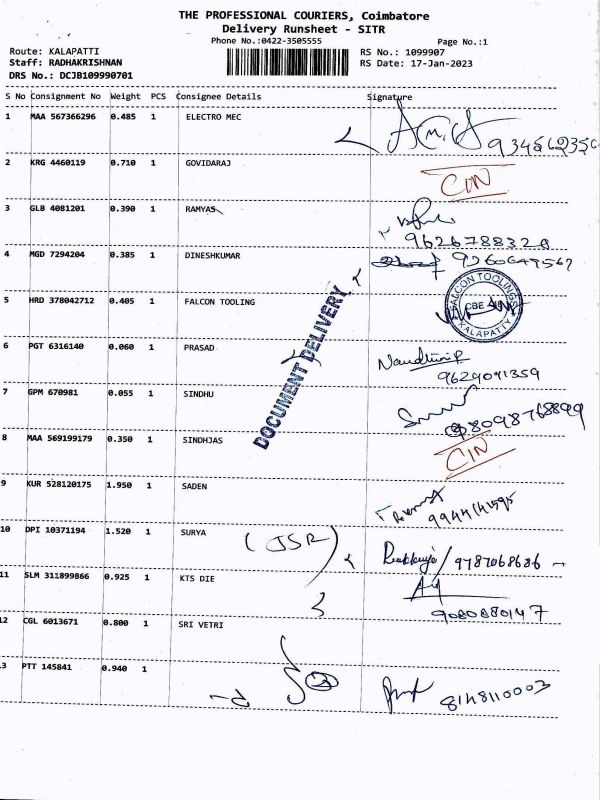 THE PROFESSIONAL COURIERS, Coimbatore
Delivery Runsheet - SITR
Phone No.:0422-3505555 Page No.:1
Route: KALAPATTI RS No.: 1099907
Staff: RADHAKRISHNAN RS Date: 17-Jan-2023
DRS No.: DCJB109990701
S No Consignment No Weight PCS Consignee Details Signature
1 MAA 567366296 0.485 1 ELECTRO MEC
2 KRG 4460119 0.710 1 GOVIDARAJ CIN
3 GLB 4081201 0.390 1 RAMYAS
9626788328
4 MGD 7294204 0.385 1 DINESHKUMAR
5 HRD 378042712 0.405 1 FALCON TOOLING FALCON TOOLINGS CBE KALAPATTY
DOCUMENT DELIVERY
6 PGT 6316140 0.060 1 PRASAD
9629091359
7 GPM 670981 0.055 1 SINDHU
8 MAA 569199179 0.350 1 SINDHJAS CIN
9 KUR 528120175 1.950 1 SADEN
10 DPI 10371194 1.520 1 SURYA (JSR) 9787068686
11 SLM 311899866 0.925 1 KTS DIE
9080880147
12 CGL 6013671 0.800 1 SRI VETRI
3 PTT 145841 0.940 1 8148110003